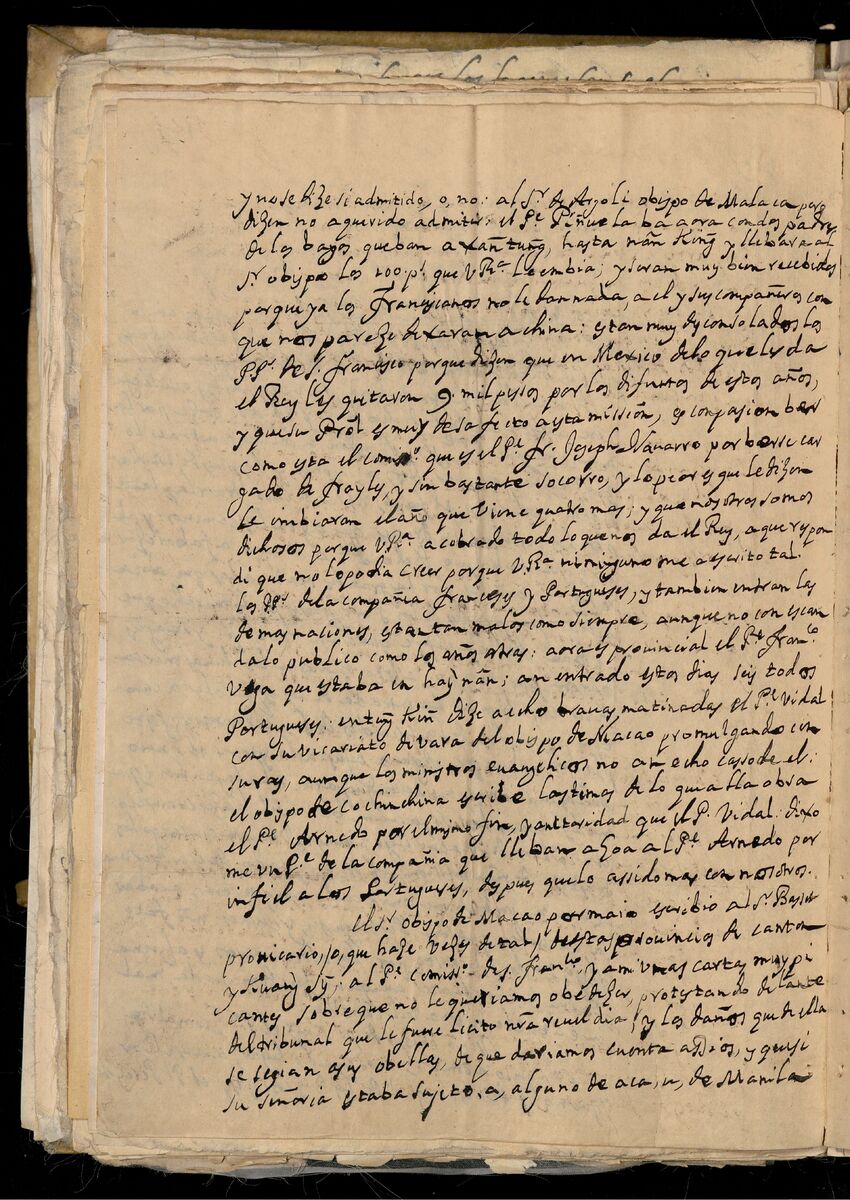 y no se dize si admitido, o, no: al Sr. de Argoli obispo de Malaca pero
dizen no a querido admitir: el Pe. Piñuela ba aora con dos padres
de los bajos que ban a xañtung, hasta nañ Kiñg y llebara al
Sr. obispo los 100 ps. que VRa. le embia; y seran muy bien recebidos
porque ya los Franciscanos no le dan nada, a el y sus compañeros con
que nos pareze dexaran a china: estan muy desconsolados los
PPs. de S. Francisco porque dizen que en Mexico de lo que les da
el Rey les quitaron 9 mil pesos por los difuntos de estos años,
y que su Prol. es muy desafecto a esta mission, es compasion ber
como esta el comisso. que es el Pe. fr. Joseph Navarro por berse car
gado de frayles, y sin bastante socorro, y lo peor es que le dizen
le imbiaran el año que viene quatro mas; y que nosotros somos
dichosos porque VRa. a cobrado todo lo que nos da el Rey, a que respon
di que no lo podia creer porque VRa. ni ninguno me a escrito tal.
los PPs. de la compañia Franceses y Portugueses, y tambien entran las
demas naciones, estan tan malos como siempre, aunque no con escan
dalo publico como los años atras: aora es provincial el Pe. Franco.
Vega que estaba en hay nañ; an entrado estos dias seis todos
Portugueses: en tuñ Kiñ dize a echo brauas matinadas el Pe. Vidal
con su vicariato de vara del obispo de Macao promulgando cen
suras, aunque los ministros euangelicos no an echo casso de el:
el obispo de cochinchina escribe lastimas de lo que alla obra
el Pe. Arnedo por el mismo fin, y auttoridad que el P. Vidal: dixo
me vn Pe. de la compañia que lleban a Goa al Pe. Arnedo por
infiel a los Portugueses, despues que lo a ssido mas con nosotros.
El Sr. obispo de Macao por maio escribio al Sr. Basset
provicario, (o, que haze vezes de tal) de estas prouincias de canton
y Kuang sy; al Pe. comisso. de S. Franco., y a mi vnas cartas muy pi
cantes sobre que no le queriamos obedezer, protestando delante
del tribunal que le fuere licito nra reueldia, y los daños que de ella
se segian a sus obejas, de que dariamos cuenta a Dios, y que si
su señoria estaba sujeto, a, alguno de aca, u, de Manila